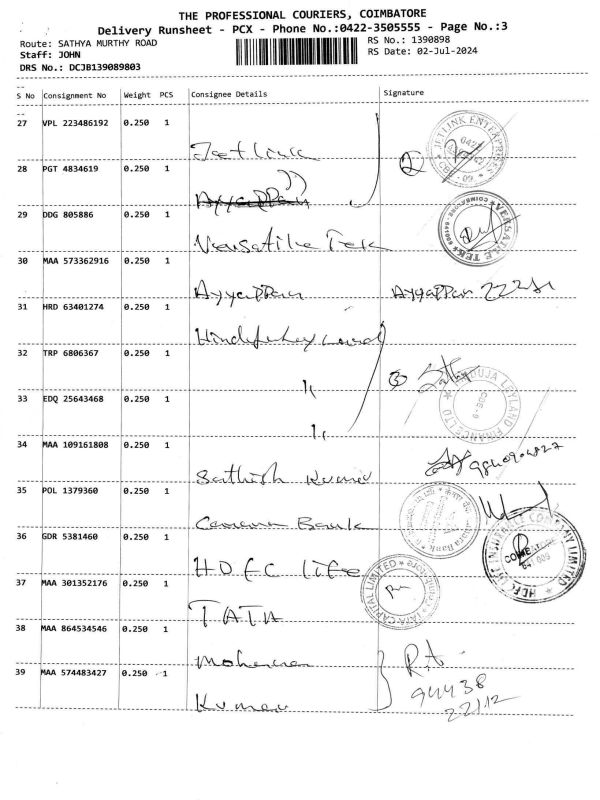 THE PROFESSIONAL COURIERS, COIMBATORE
Delivery Runsheet - PCX - Phone No.:0422-3505555 - Page No.:3
Route: SATHYA MURTHY ROAD
RS No.: 1390898
Staff: JOHN
RS Date: 02-Jul-2024
DRS No.: DCJB139089803
S No Consignment No Weight PCS Consignee Details Signature
27 VPL 223486192 0.250 1
Jetlink
JETLINK ENTERPRISES
28 PGT 4834619 0.250 1
2
29 DDG 805886 0.250 1
Versatile Tek
VERSATILE TEK
30 MAA 573362916 0.250 1
Ayyappan
Ayyappan
31 HRD 63401274 0.250 1
32 TRP 6806367 0.250 1
3
33 EDQ 25643468 0.250 1
HINDUJA LEYLAND FINANCE LTD
34 MAA 109161808 0.250 1
Sathish Kumar
35 POL 1379360 0.250 1
Canara Bank
36 GDR 5381460 0.250 1
HDFC life
HDFC LIFE INSURANCE COMPANY LIMITED
COIMBATORE
37 MAA 301352176 0.250 1
TATA
TATA CAPITAL LIMITED
38 MAA 864534546 0.250 1
R.A
39 MAA 574483427 0.250 1
94438
22112
Kumar